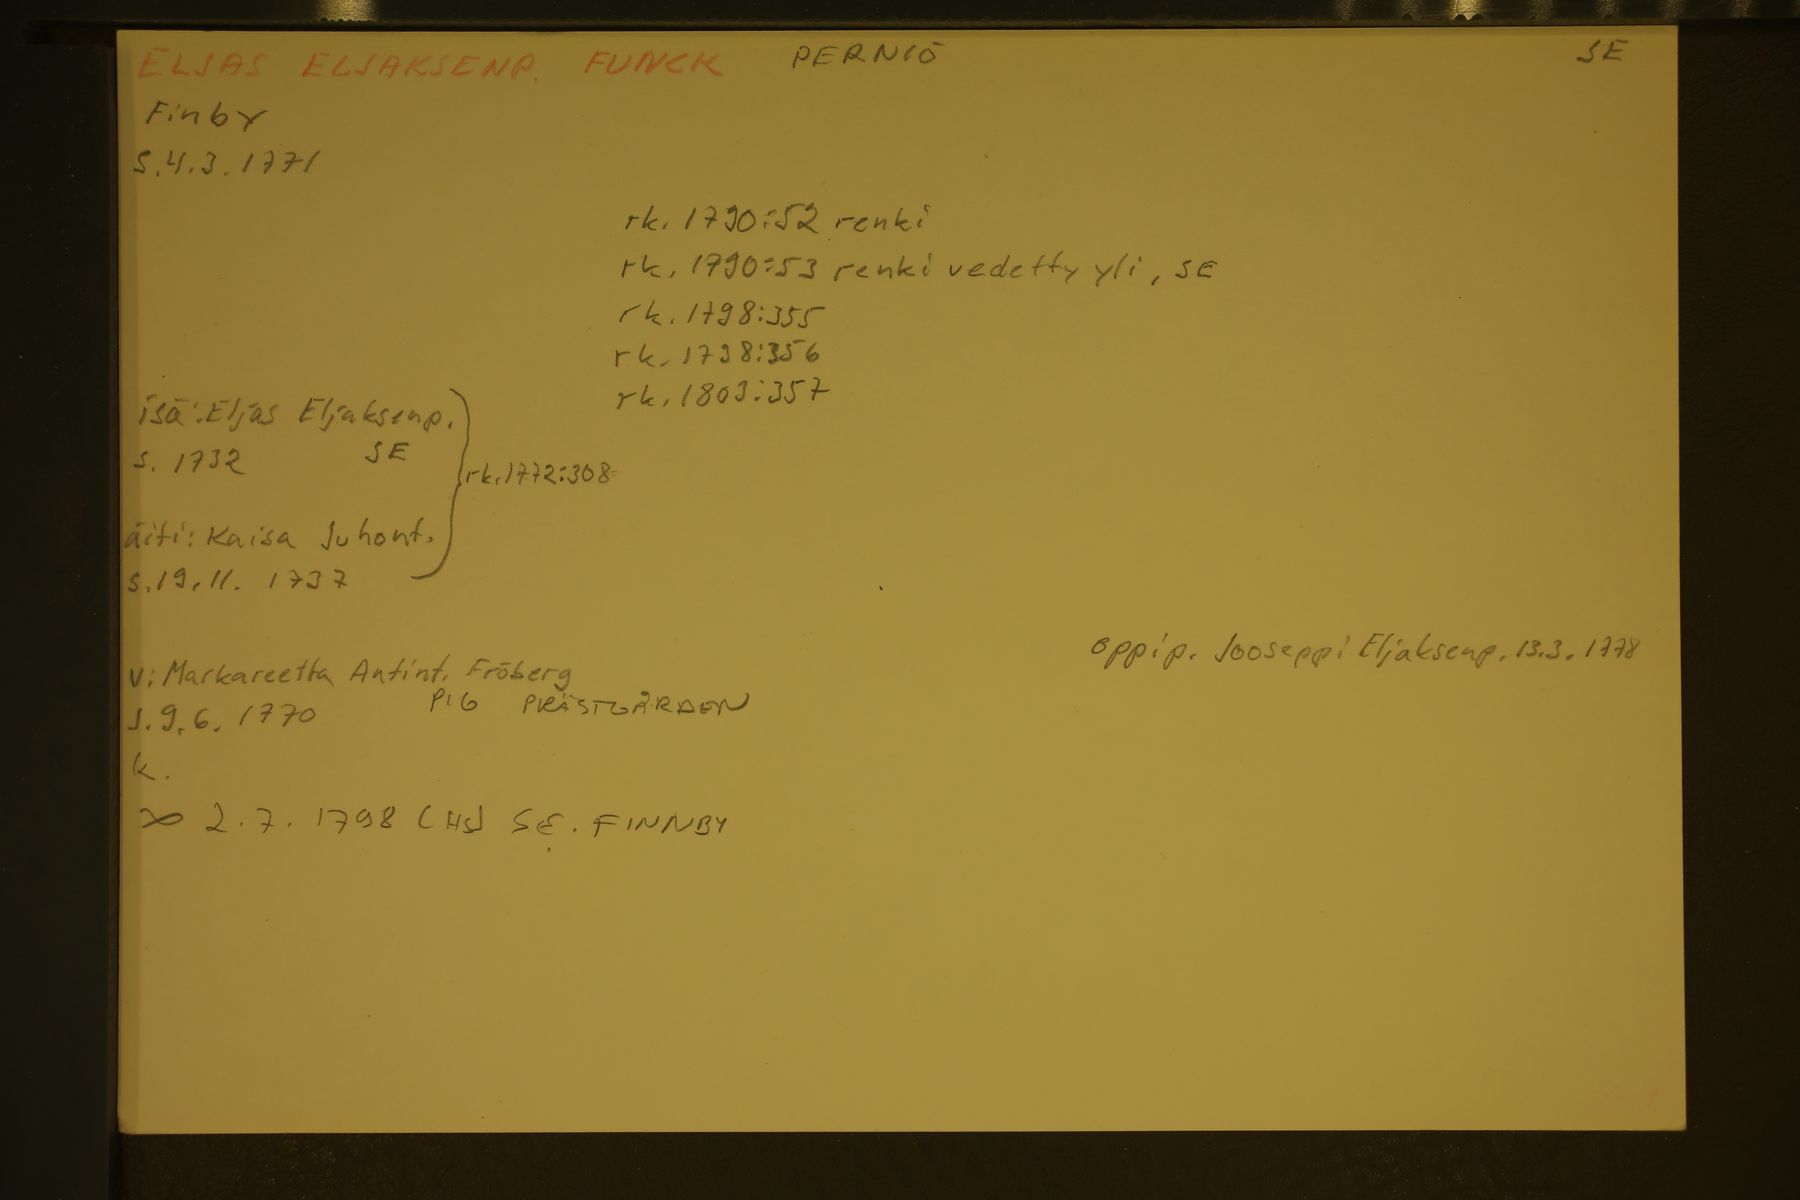 ELJAS ELJAKSENP. FUNCK PERNIÖ SE
Finby
s.4.3.1771
rk. 1790:52 renki
rk. 1790:53 renki vedetty yli, SE
rk. 1798:355
rk. 1798:356
rk. 1803:357
isä: Eljas Eljaksenp.
s. 1732 SE
rk.1772:308
äiti: Kaisa Juhont.
s.19.11. 1737
oppip. Jooseppi Eljaksenp. 13.3.1778
v: Markareetta Antint. Fröberg
s.9.6.1770 PIG PRÄSTGÅRDEN
k.
∞ 2.7.1798 (HS) SE. FINNBY